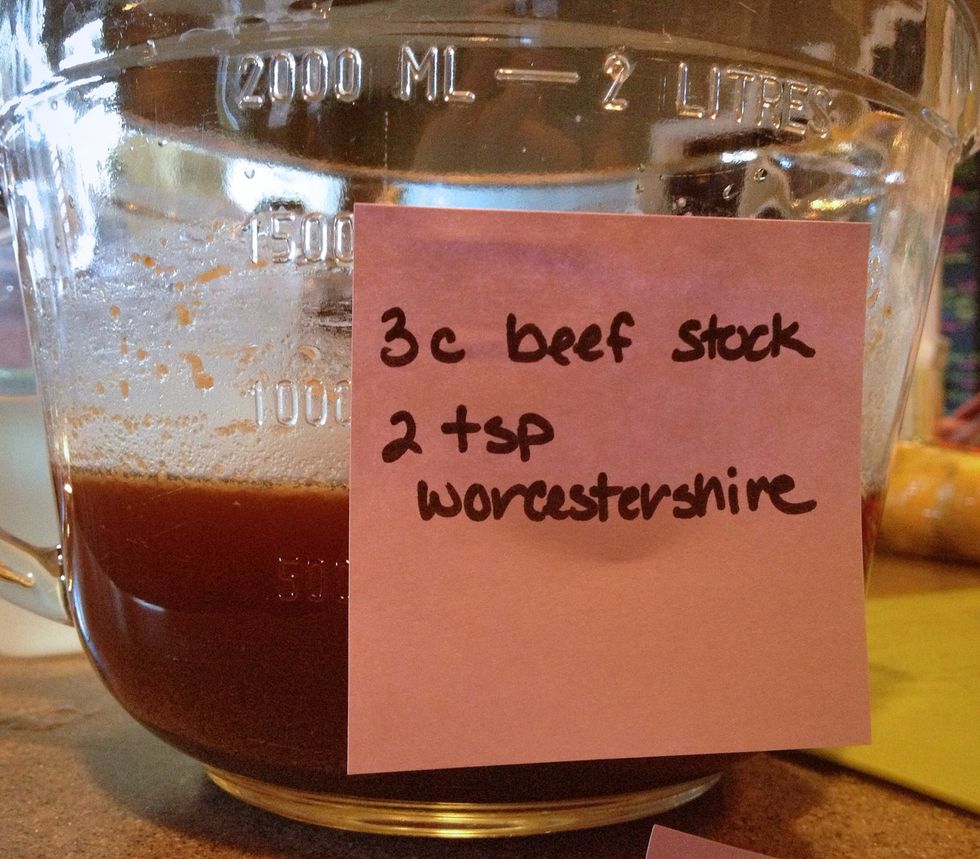 2000 ML — 2 LITRES
1500
1000
500
3c beef stock
2 tsp
worcestershire